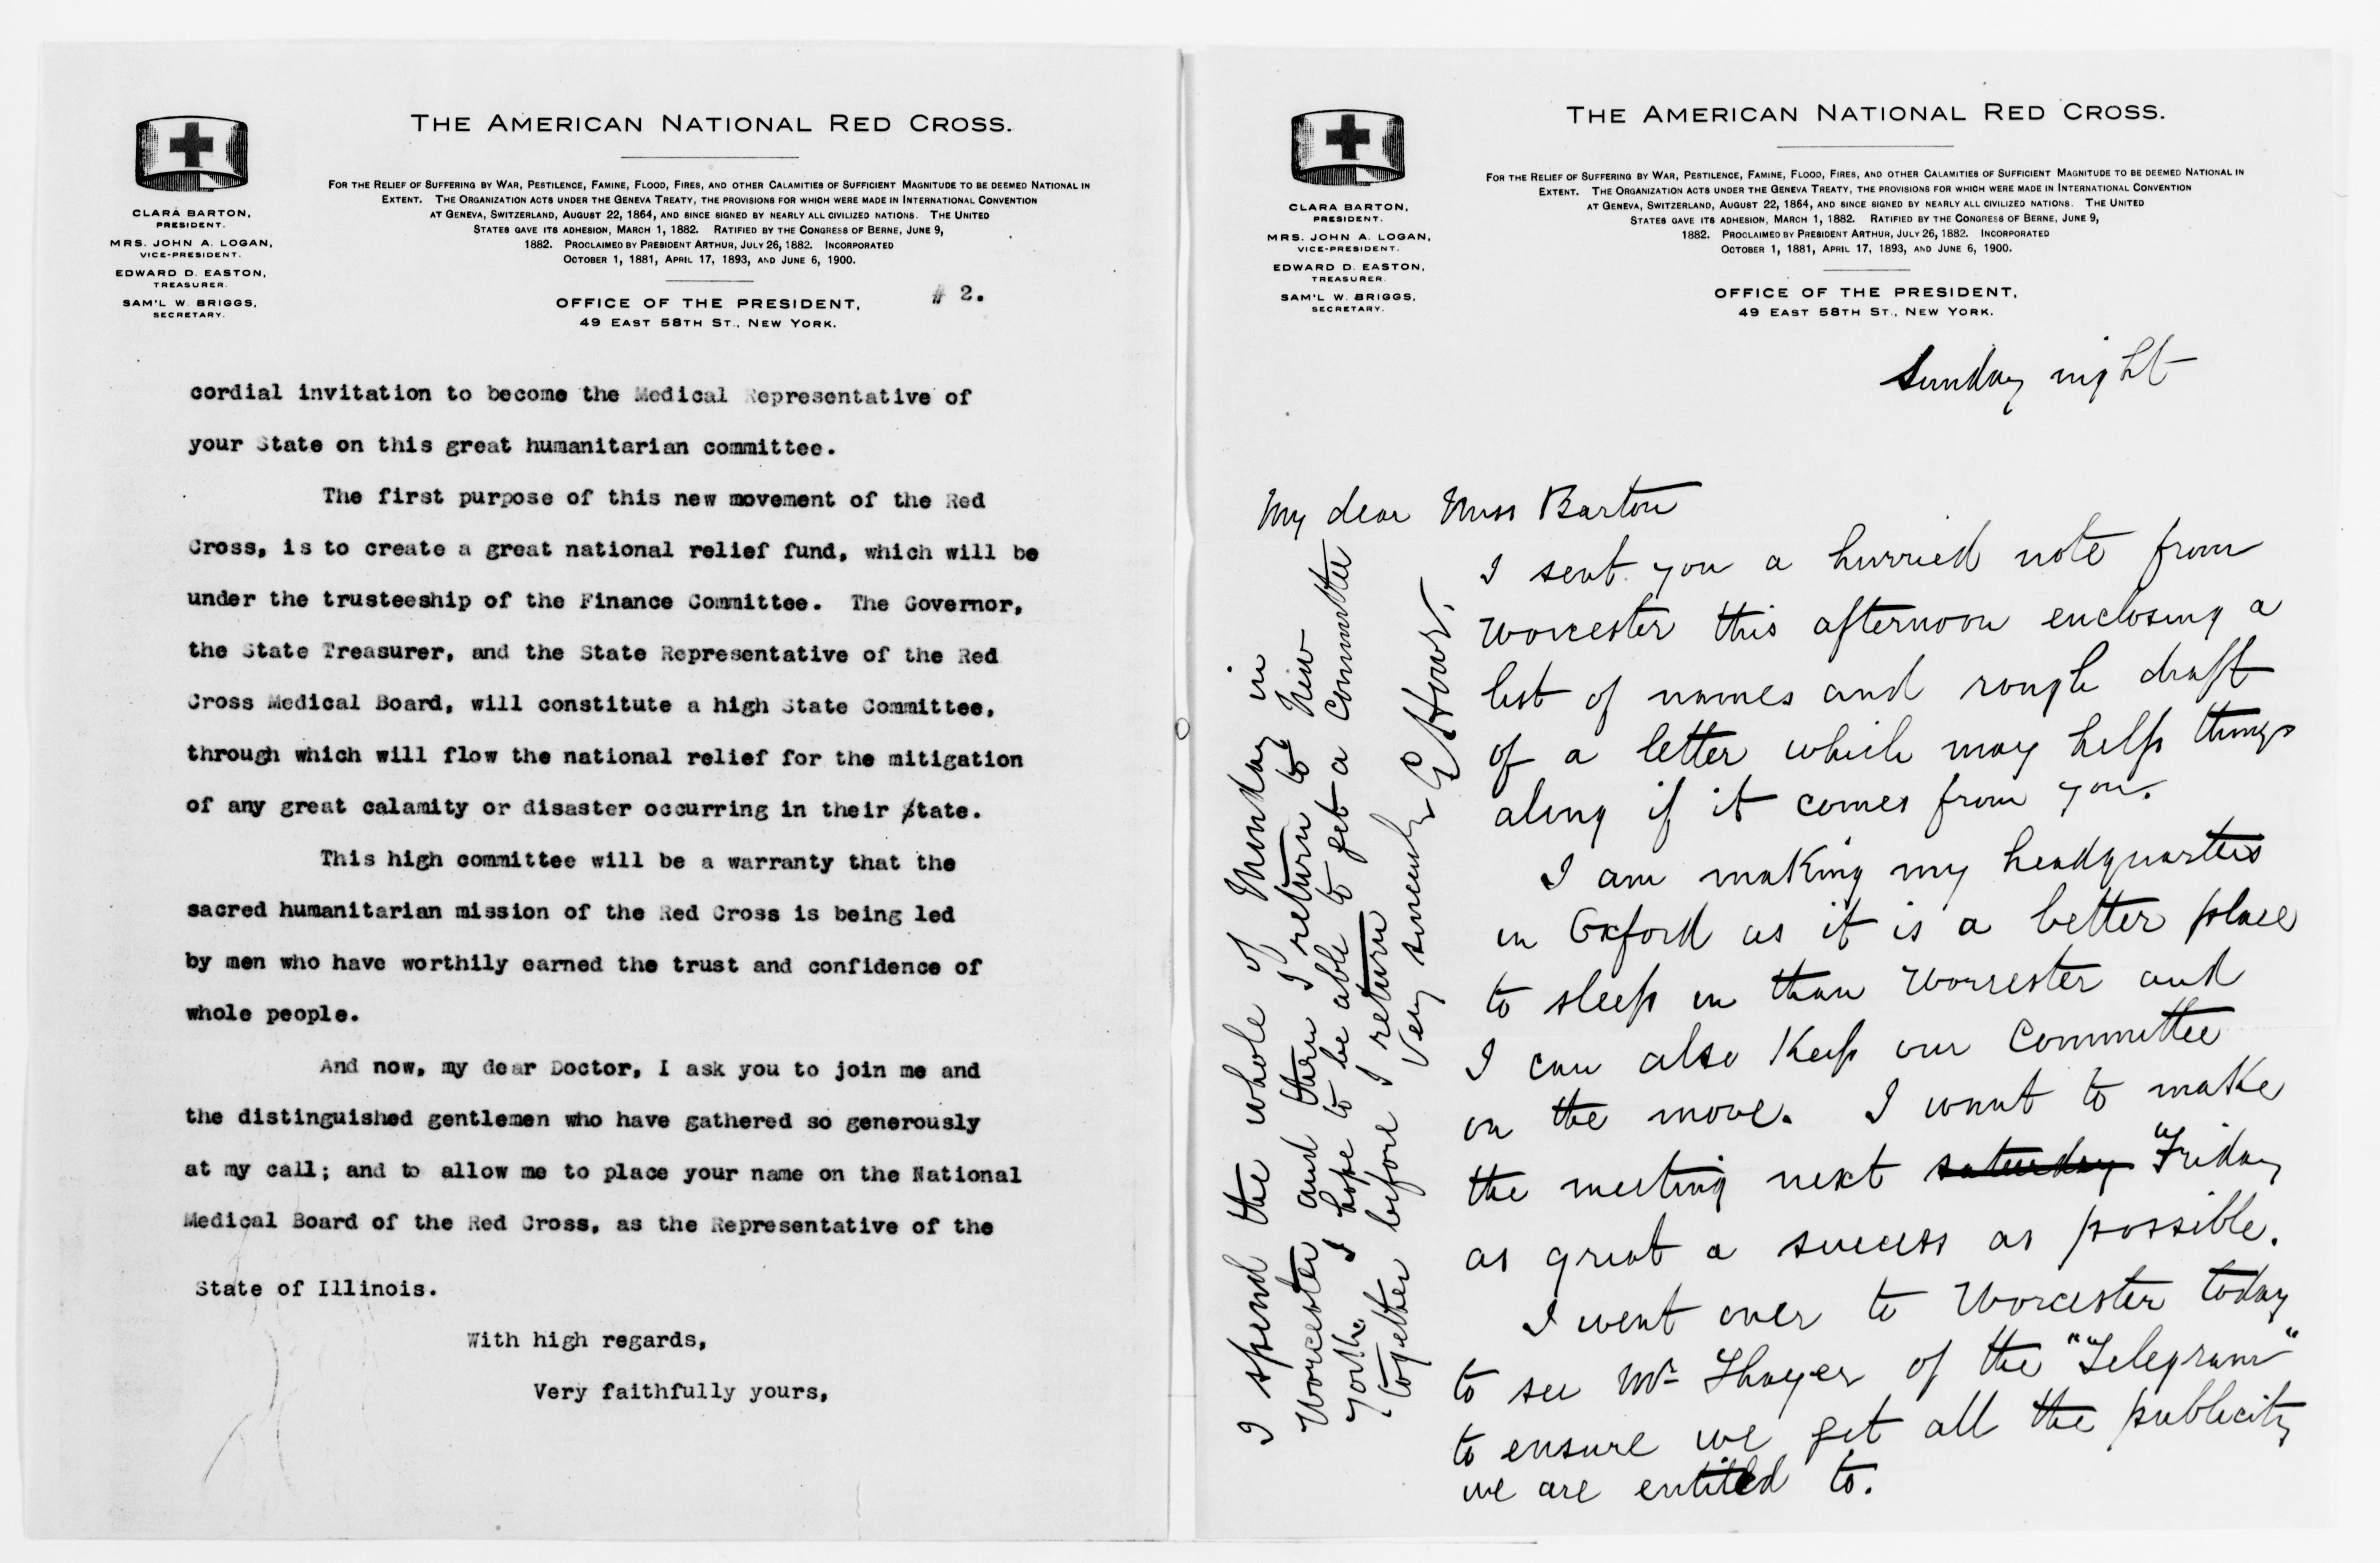 THE AMERICAN NATIONAL RED CROSS.
FOR THE RELIEF OF SUFFERING BY WAR, PESTILENCE, FAMINE, FLOOD, FIRES, AND OTHER CALAMITIES OF SUFFICIENT MAGNITUDE TO BE DEEMED NATIONAL IN
EXTENT. THE ORGANIZATION ACTS UNDER THE GENEVA TREATY, THE PROVISIONS FOR WHICH WERE MADE IN INTERNATIONAL CONVENTION
AT GENEVA, SWITZERLAND, AUGUST 22, 1864, AND SINCE SIGNED BY NEARLY ALL CIVILIZED NATIONS. THE UNITED
STATES GAVE ITS ADHESION, MARCH 1, 1882. RATIFIED BY THE CONGRESS OF BERNE, JUNE 9,
1882. PROCLAIMED BY PRESIDENT ARTHUR, JULY 26, 1882. INCORPORATED
OCTOBER 1, 1881, APRIL 17, 1893, AND JUNE 6, 1900.
CLARA BARTON,
PRESIDENT.
MRS. JOHN A. LOGAN,
VICE-PRESIDENT.
EDWARD D. EASTON,
TREASURER.
SAM'L W. BRIGGS,
SECRETARY.
OFFICE OF THE PRESIDENT,
49 EAST 58TH ST., NEW YORK.
# 2.
cordial invitation to become the Medical Representative of
your State on this great humanitarian committee.
The first purpose of this new movement of the Red
Cross, is to create a great national relief fund, which will be
under the trusteeship of the Finance Committee. The Governor,
the State Treasurer, and the State Representative of the Red
Cross Medical Board, will constitute a high State Committee,
through which will flow the national relief for the mitigation
of any great calamity or disaster occurring in their State.
This high committee will be a warranty that the
sacred humanitarian mission of the Red Cross is being led
by men who have worthily earned the trust and confidence of
whole people.
And now, my dear Doctor, I ask you to join me and
the distinguished gentlemen who have gathered so generously
at my call; and to allow me to place your name on the National
Medical Board of the Red Cross, as the Representative of the
State of Illinois.
With high regards,
Very faithfully yours,
THE AMERICAN NATIONAL RED CROSS.
FOR THE RELIEF OF SUFFERING BY WAR, PESTILENCE, FAMINE, FLOOD, FIRES, AND OTHER CALAMITIES OF SUFFICIENT MAGNITUDE TO BE DEEMED NATIONAL IN
EXTENT. THE ORGANIZATION ACTS UNDER THE GENEVA TREATY, THE PROVISIONS FOR WHICH WERE MADE IN INTERNATIONAL CONVENTION
AT GENEVA, SWITZERLAND, AUGUST 22, 1864, AND SINCE SIGNED BY NEARLY ALL CIVILIZED NATIONS. THE UNITED
STATES GAVE ITS ADHESION, MARCH 1, 1882. RATIFIED BY THE CONGRESS OF BERNE, JUNE 9,
1882. PROCLAIMED BY PRESIDENT ARTHUR, JULY 26, 1882. INCORPORATED
OCTOBER 1, 1881, APRIL 17, 1893, AND JUNE 6, 1900.
CLARA BARTON,
PRESIDENT.
MRS. JOHN A. LOGAN,
VICE-PRESIDENT.
EDWARD D. EASTON,
TREASURER.
SAM'L W. BRIGGS,
SECRETARY.
OFFICE OF THE PRESIDENT,
49 EAST 58TH ST., NEW YORK.
Sunday night
My dear Miss Barton
I sent you a hurried note from
Worcester this afternoon enclosing a
list of names and rough draft
of a letter which may help things
along if it comes from you.
I am making my headquarters
in Oxford as it is a better place
to sleep in than Worcester and
I can also keep our Committee
on the move. I want to make
the meeting next saturday Friday
as great a success as possible.
I went over to Worcester today
to see Mr Thayer of the "Telegram"
to ensure we get all the publicity
we are entitled to.
I spend the whole of Monday in
Worcester and then I return to New
York. I hope to be able to get a Committee
together before I return
Very sincerely